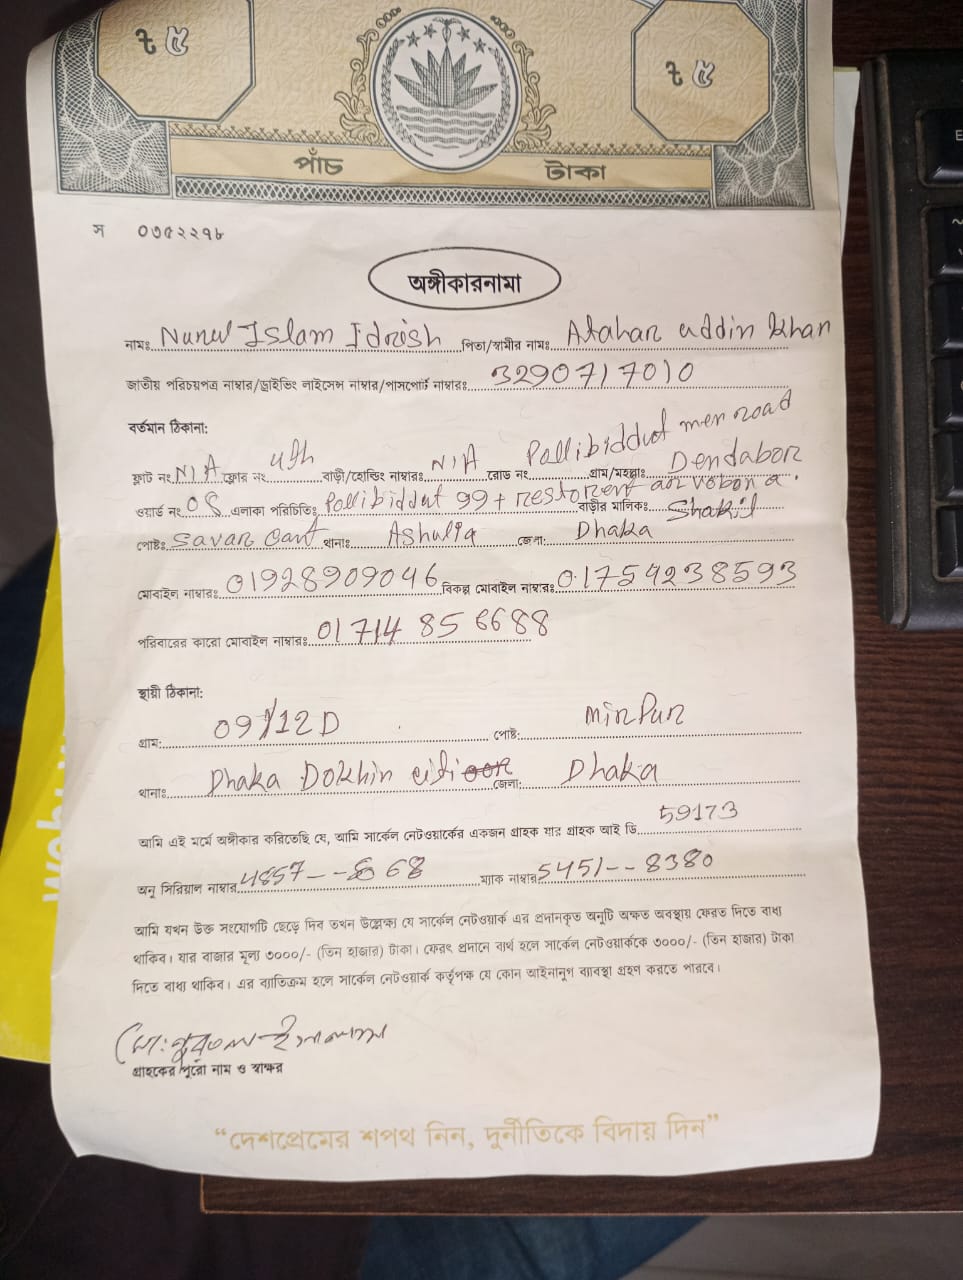 ৳ ৫ ৳ ৫
পাঁচ টাকা
স ০৩৫২২৭৮
অঙ্গীকারনামা
নামঃ Nurul Islam Idrish পিতা/স্বামীর নামঃ Atahar uddin khan
জাতীয় পরিচয়পত্র নাম্বার/ড্রাইভিং লাইসেন্স নাম্বার/পাসপোর্ট নাম্বারঃ 3290717010
বর্তমান ঠিকানা:
ফ্লাট নং N/A ফ্লোর নং 4th বাড়ী/হোল্ডিং নাম্বারঃ N/A রোড নং Pallibiddut men road গ্রাম/মহল্লাঃ Dendabor
ওয়ার্ড নং 05 এলাকা পরিচিতিঃ Pollibiddut 99+ restorent বাড়ীর মালিকঃ Shakil
পোষ্টঃ Savar Cant থানাঃ Ashulia জেলা: Dhaka
মোবাইল নাম্বারঃ 01928909046 বিকল্প মোবাইল নাম্বারঃ 01754238593
পরিবারের কারো মোবাইল নাম্বারঃ 01714 856688
স্থায়ী ঠিকানা:
গ্রাম: 09/12D পোষ্ট: Mirpur
থানাঃ Dhaka Dokhin citi জেলা: Dhaka
আমি এই মর্মে অঙ্গীকার করিতেছি যে, আমি সার্কেল নেটওয়ার্কের একজন গ্রাহক যার গ্রাহক আই ডি 59173
অনু সিরিয়াল নাম্বার 4857-- 68 ম্যাক নাম্বার 5451--8380
আমি যখন উক্ত সংযোগটি ছেড়ে দিব তখন উল্লেক্ষ্য যে সার্কেল নেটওয়ার্ক এর প্রদানকৃত অনুটি অক্ষত অবস্থায় ফেরত দিতে বাধ্য
থাকিব। যার বাজার মূল্য ৩০০০/- (তিন হাজার) টাকা। ফেরৎ প্রদানে ব্যর্থ হলে সার্কেল নেটওয়ার্ককে ৩০০০/- (তিন হাজার) টাকা
দিতে বাধ্য থাকিব। এর ব্যতিক্রম হলে সার্কেল নেটওয়ার্ক কর্তৃপক্ষ যে কোন আইনানুগ ব্যবস্থা গ্রহণ করতে পারবে।
মো: নুরুল ইসলাম
গ্রাহকের পুরো নাম ও স্বাক্ষর
“দেশপ্রেমের শপথ নিন, দুর্নীতিকে বিদায় দিন”